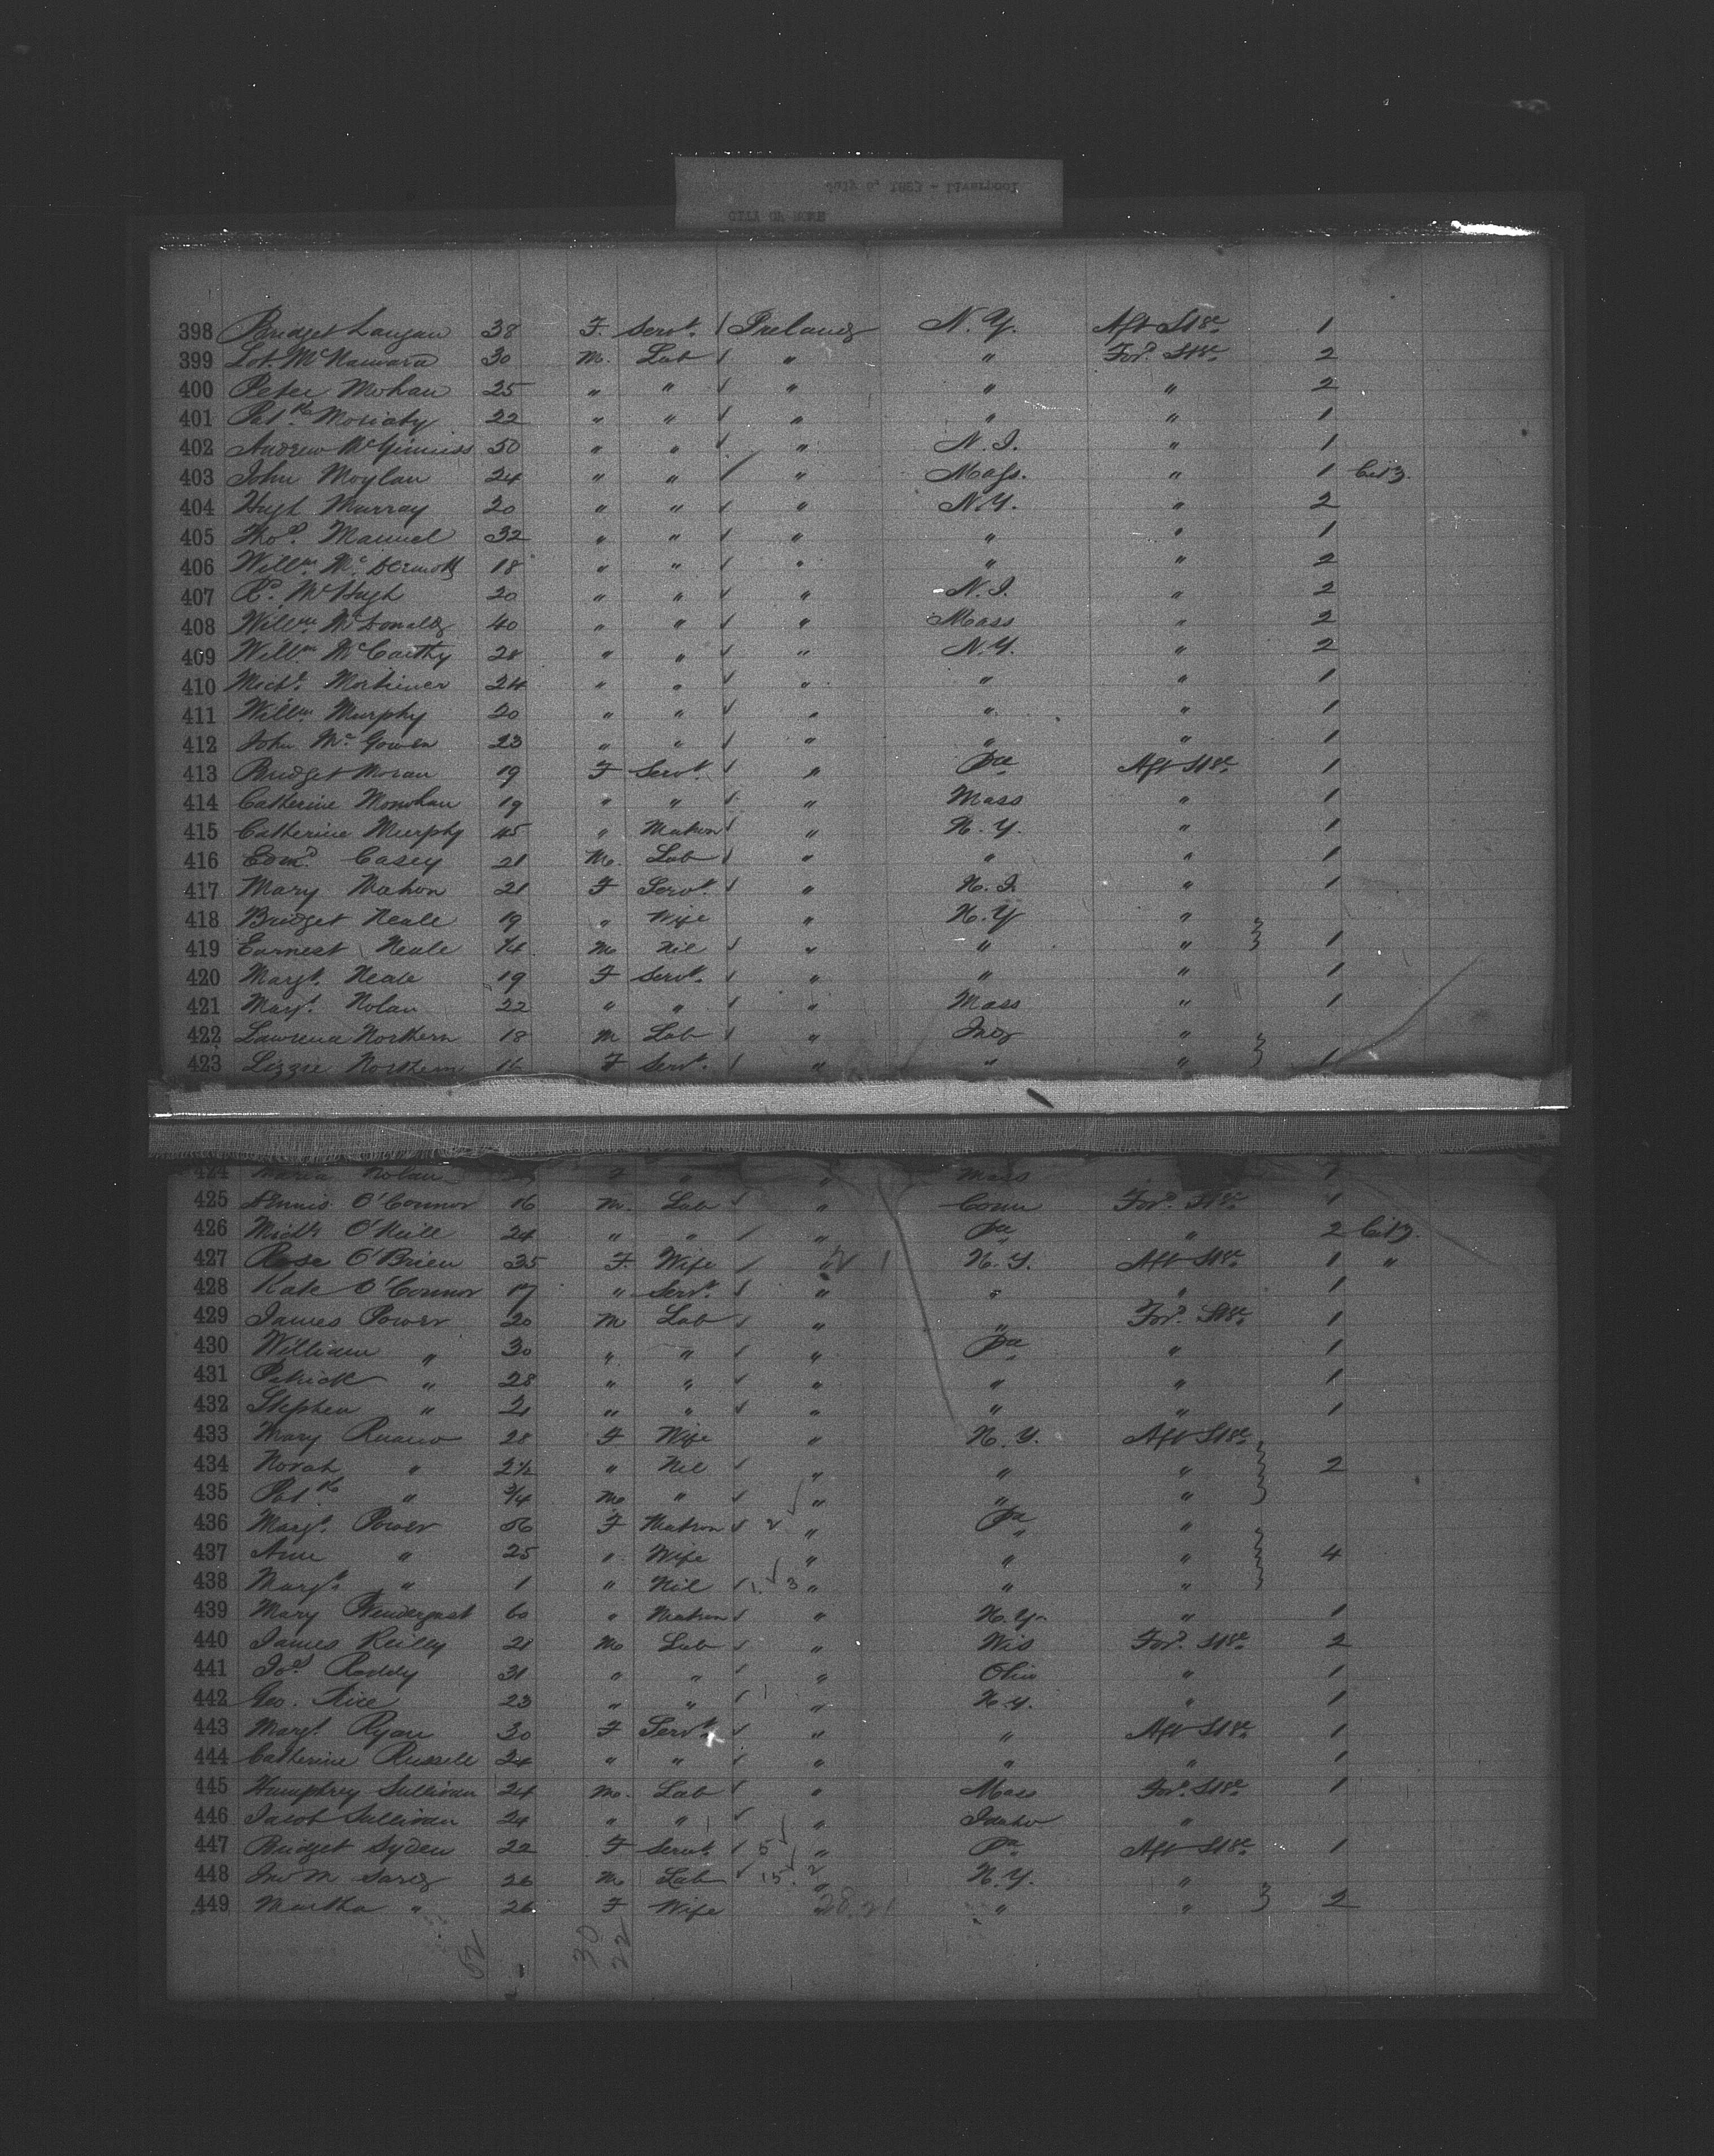 July 6, 1883 - Liverpool
CITY OF ROME
398 Bridget Langan 38 F. Servt. ✓ Ireland N.Y. Aft St'ge 1
399 Lot. McNamara 30 M. Lab ✓ " " For'd St'ge 2
400 Peter Mohan 25 " " ✓ " " " 2
401 Patk Moriaty 22 " " ✓ " " " 1
402 Andrew McGinniss 50 " " ✓ " N.J. " 1
403 John Moylan 24 " " ✓ " Mass. " 1 Citz.
404 Hugh Murray 20 " " ✓ " N.Y. " 2
405 Thos. 32 " " ✓ " " " 1
406 Willm. McDermott 18 " " ✓ " " " 2
407 McHugh 20 " " ✓ " N.J. " 2
408 Willm. McDonald 40 " " ✓ " Mass " 2
409 Willm. McCarthy 28 " " ✓ " N.Y. " 2
410 Michl. Mortimer 24 " " ✓ " " " 1
411 Willm. Murphy 20 " " ✓ " " " 1
412 John McGowen 23 " " ✓ " " " 1
413 Bridget Moran 19 F Servt. ✓ " Pa Aft St'ge 1
414 Catherine Monohan 19 " " ✓ " Mass " 1
415 Catherine Murphy 45 " Matron ✓ " N.Y. " 1
416 Edmd. Casey 21 M. Lab ✓ " " " 1
417 Mary Mahon 21 F Servt. ✓ " N.J. " 1
418 Bridget Neale 19 " Wife " N.Y "
419 Earnest Neale M Nil ✓ " " " 1
420 Margt. Neale 19 F Servt. ✓ " " " 1
421 Margt. Nolan 22 " " ✓ " Mass " 1
422 Lawrence Northern 18 M Lab ✓ " Ind "
423 Lizzie Northern 16 F Servt. ✓ " " " 1
424 Maria Nolan F " " Mass 1
425 Dennis O'Connor 16 M. Lab ✓ " Conn For'd St'ge 1
426 Michl O'Neill 24 " " ✓ " Pa " 2 Citz.
427 Rose O'Brien 35 F. Wife ✓ " N.Y. Aft St'ge 1 "
428 Kate O'Connor 17 " Servt. ✓ " " " 1
429 James Power 20 M Lab ✓ " " For'd St'ge 1
430 William " 30 " " ✓ " Pa " 1
431 Patrick " 28 " " ✓ " " " 1
432 Stephen " 21 " " ✓ " " " 1
433 Mary 28 F Wife " N.Y. Aft St'ge
434 Norah " 2½ " Nil ✓ " " " 2
435 Patk " ¾ M " ✓ " " "
436 Margt. Power 56 F Matron ✓ 2 " Pa "
437 Ann " 25 " Wife " " " 4
438 Margt. " 1 " Nil ✓ 1 3 " " "
439 Mary Prendergast 60 " Matron ✓ " N.Y. " 1
440 James Reilly 21 M Lab ✓ " Wis For'd St'ge 2
441 Jos. Roddy 31 " " ✓ " Ohio " 1
442 Geo. Rice 23 " " ✓ " N.Y. " 1
443 Margt. Ryan 30 F Servt. ✓ " " Aft St'ge 1
444 Catherine Russell 24 " " ✓ " " " 1
445 Humphrey Sullivan 24 M. Lab ✓ " Mass For'd St'ge 1
446 Jacob Sullivan 24 " " ✓ " Idaho "
447 Bridget Syden 22 F Servt. ✓ 5 " Pa Aft St'ge 1
448 Jno M 26 M Lab ✓ 15 2 " N.Y. "
449 Martha " 26 F Wife 28 21 " " 2
52 30 22